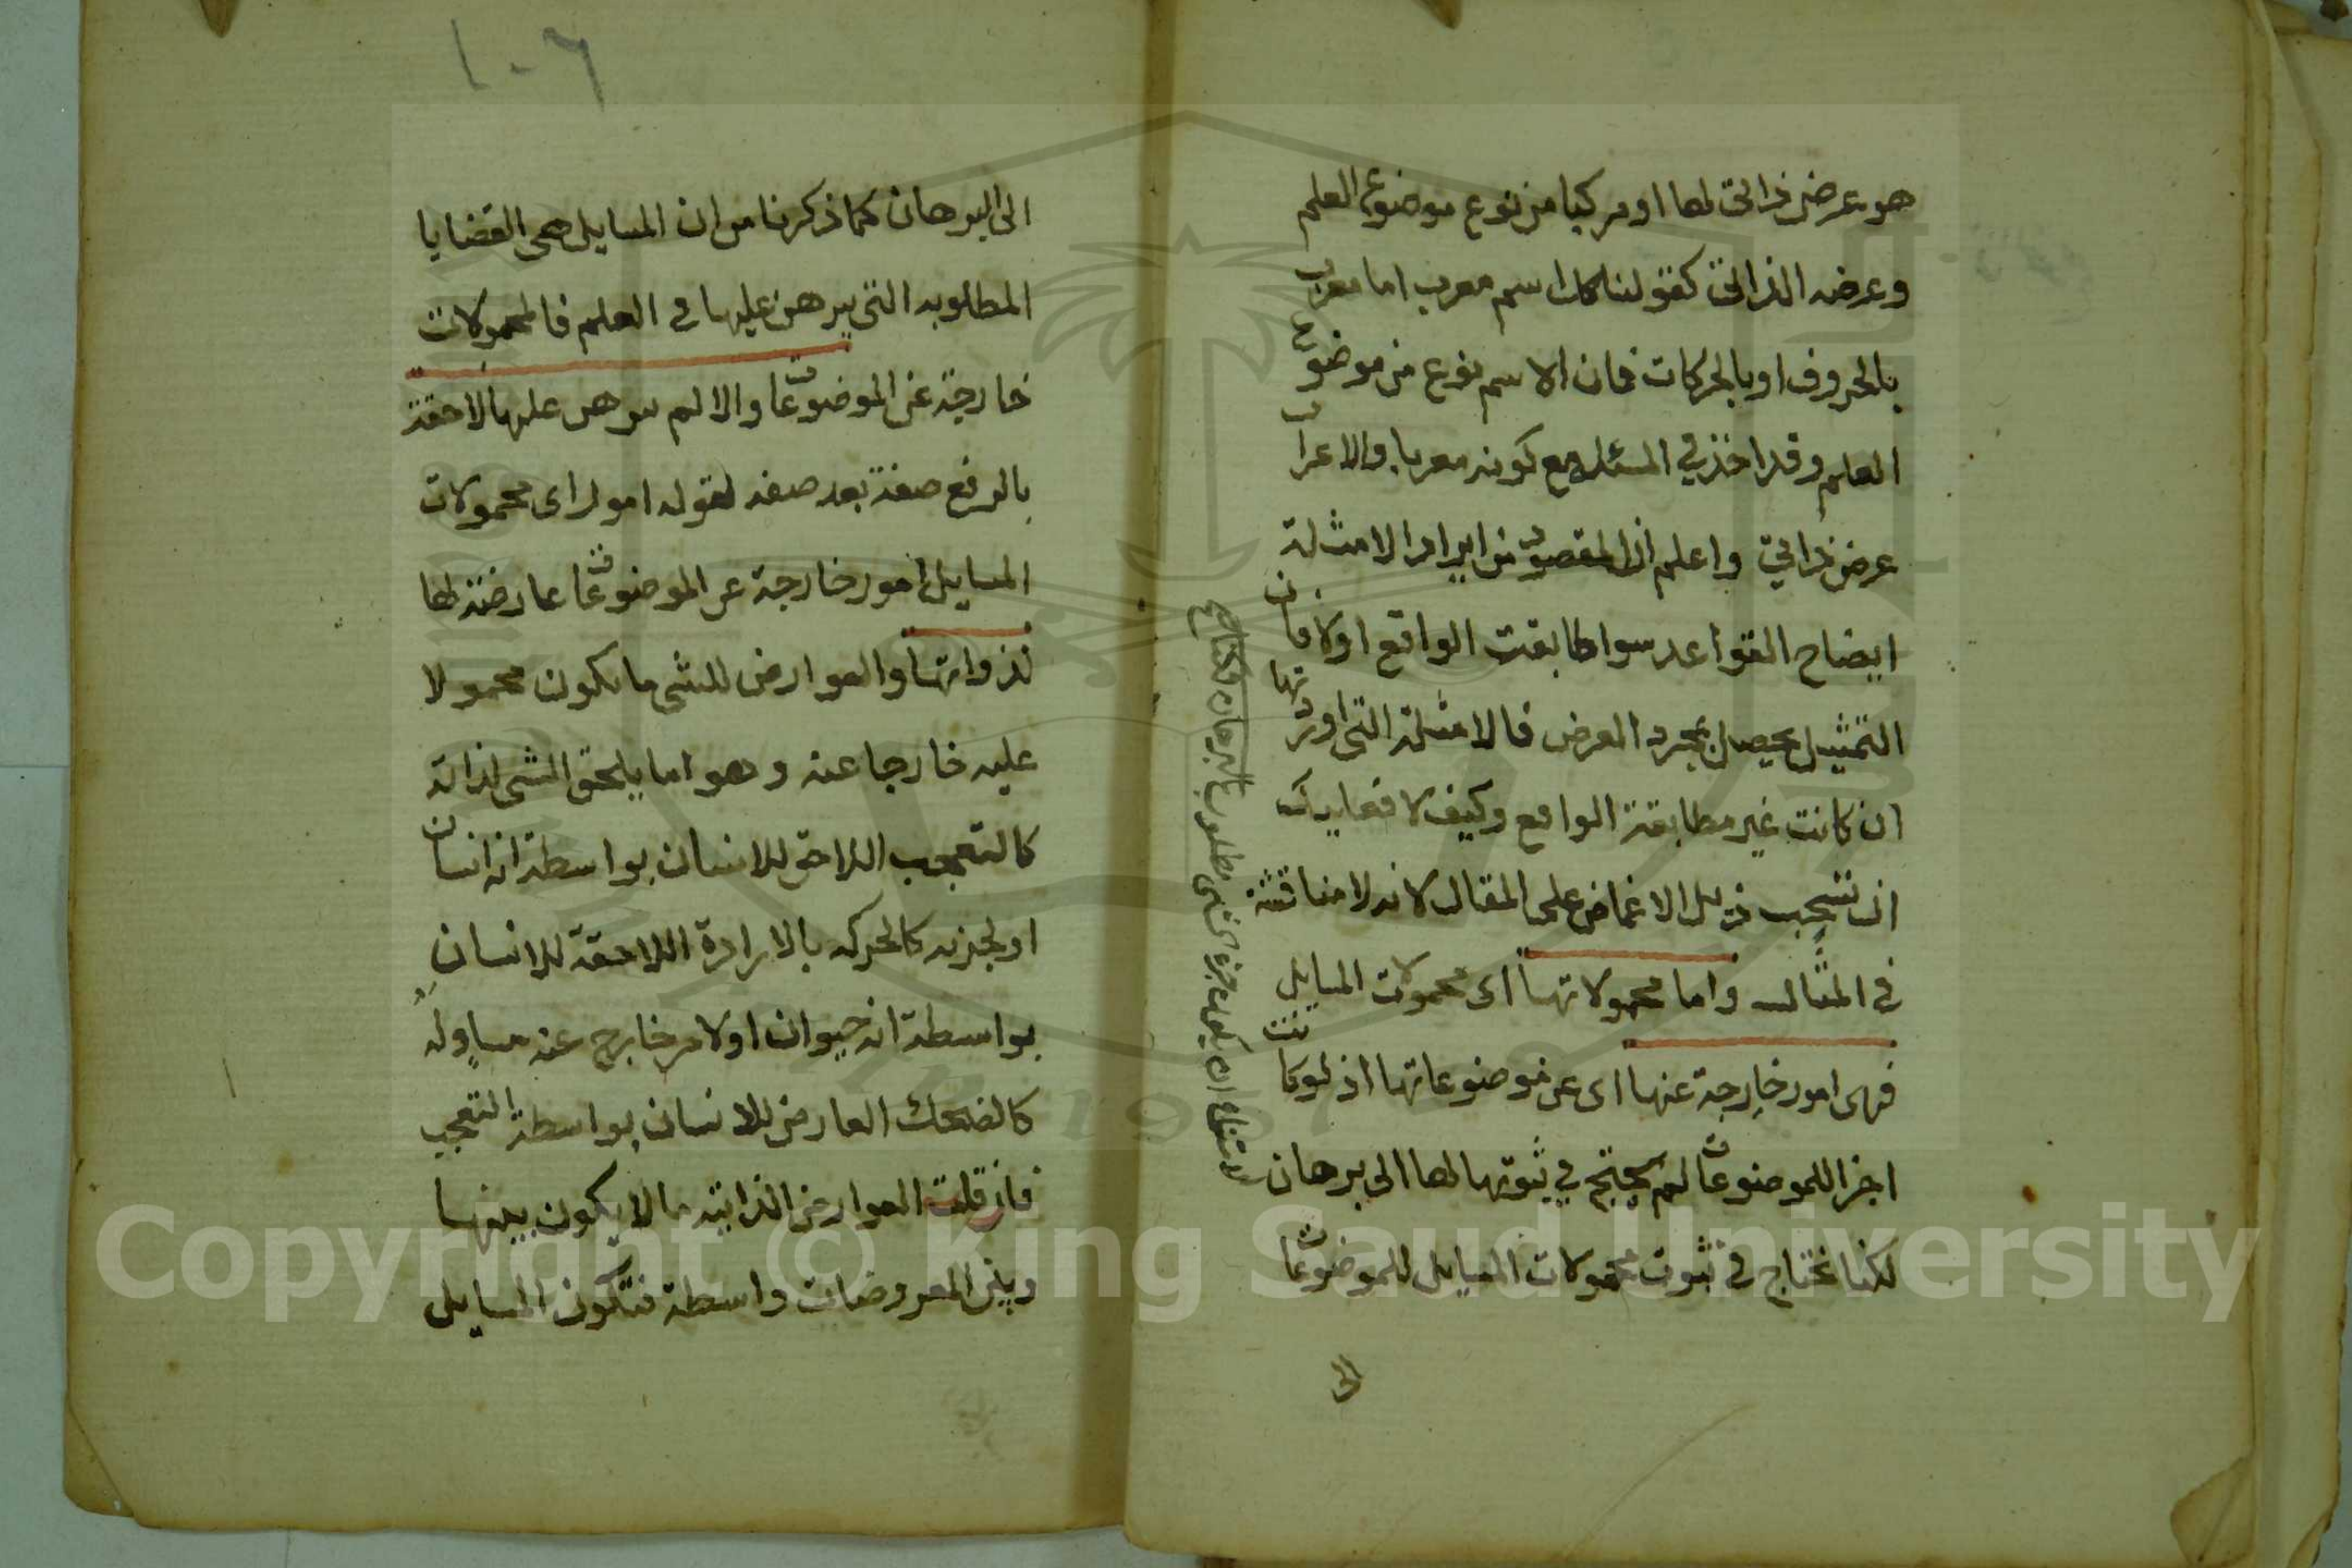 هو عرض ذاتي لها او مركبا من نوع موضوع العلم
وعرضه الذاتي كقولنا كل اسم معرب اما معرب
بالحروف او بالحركات فان الاسم نوع من موضوع
العلم وقد اخذ في المسئلة مع كونه معربا والاعراب
عرض ذاتي واعلم ان المقصود من ايراد الامثلة
ايضاح القواعد سوا طابقت الواقع اولا فان
التمثيل يحصل بمجرد الفرض فالامثلة التي اوردتها
ان كانت غير مطابقة الواقع وكيف لا فعليك
ان تسحب ذيل الاغماض على المقال لانه لا مناقشة
في المثال واما محمولاتها اى محمولات المسايل
فهى امور خارجة عنها اى عن موضوعاتها اذ لو كانت
اجزا للموضوعات لم يحتج في ثبوتها لها الى برهان
لكنا نحتاج في ثبوت محمولات المسايل للموضوعات
الى
لامتناع ان يكون جزء الشى مطلوب بالبرهان
١٠٦
الى البرهان كما ذكرنا من ان المسايل هى القضايا
المطلوبه التي يبرهن عليها في العلم فالمحمولات
خارجة عن الموضوعات والا لم يبرهن عليها لاحقة
بالرفع صفة بعد صفه لقوله امور اى محمولات
المسايل امور خارجة عن الموضوعات عارضة لها
لذواتها والعوارض للشى ما يكون محمولا
عليه خارجا عنه وهو اما يلحق الشى لذاته
كالتعجب اللاحق للانسان بواسطة انه انسان
او لجزيه كالحركه بالارادة اللاحقة للانسان
بواسطة انه حيوان او لامر خارج عنه مساو له
كالضحك العارض للانسان بواسطة التعجب
فان قلت العوارض الذاتيه ما لا يكون بينها
وبين المعروضات واسطة فتكون المسايل
Copyright © King Saud University
1957